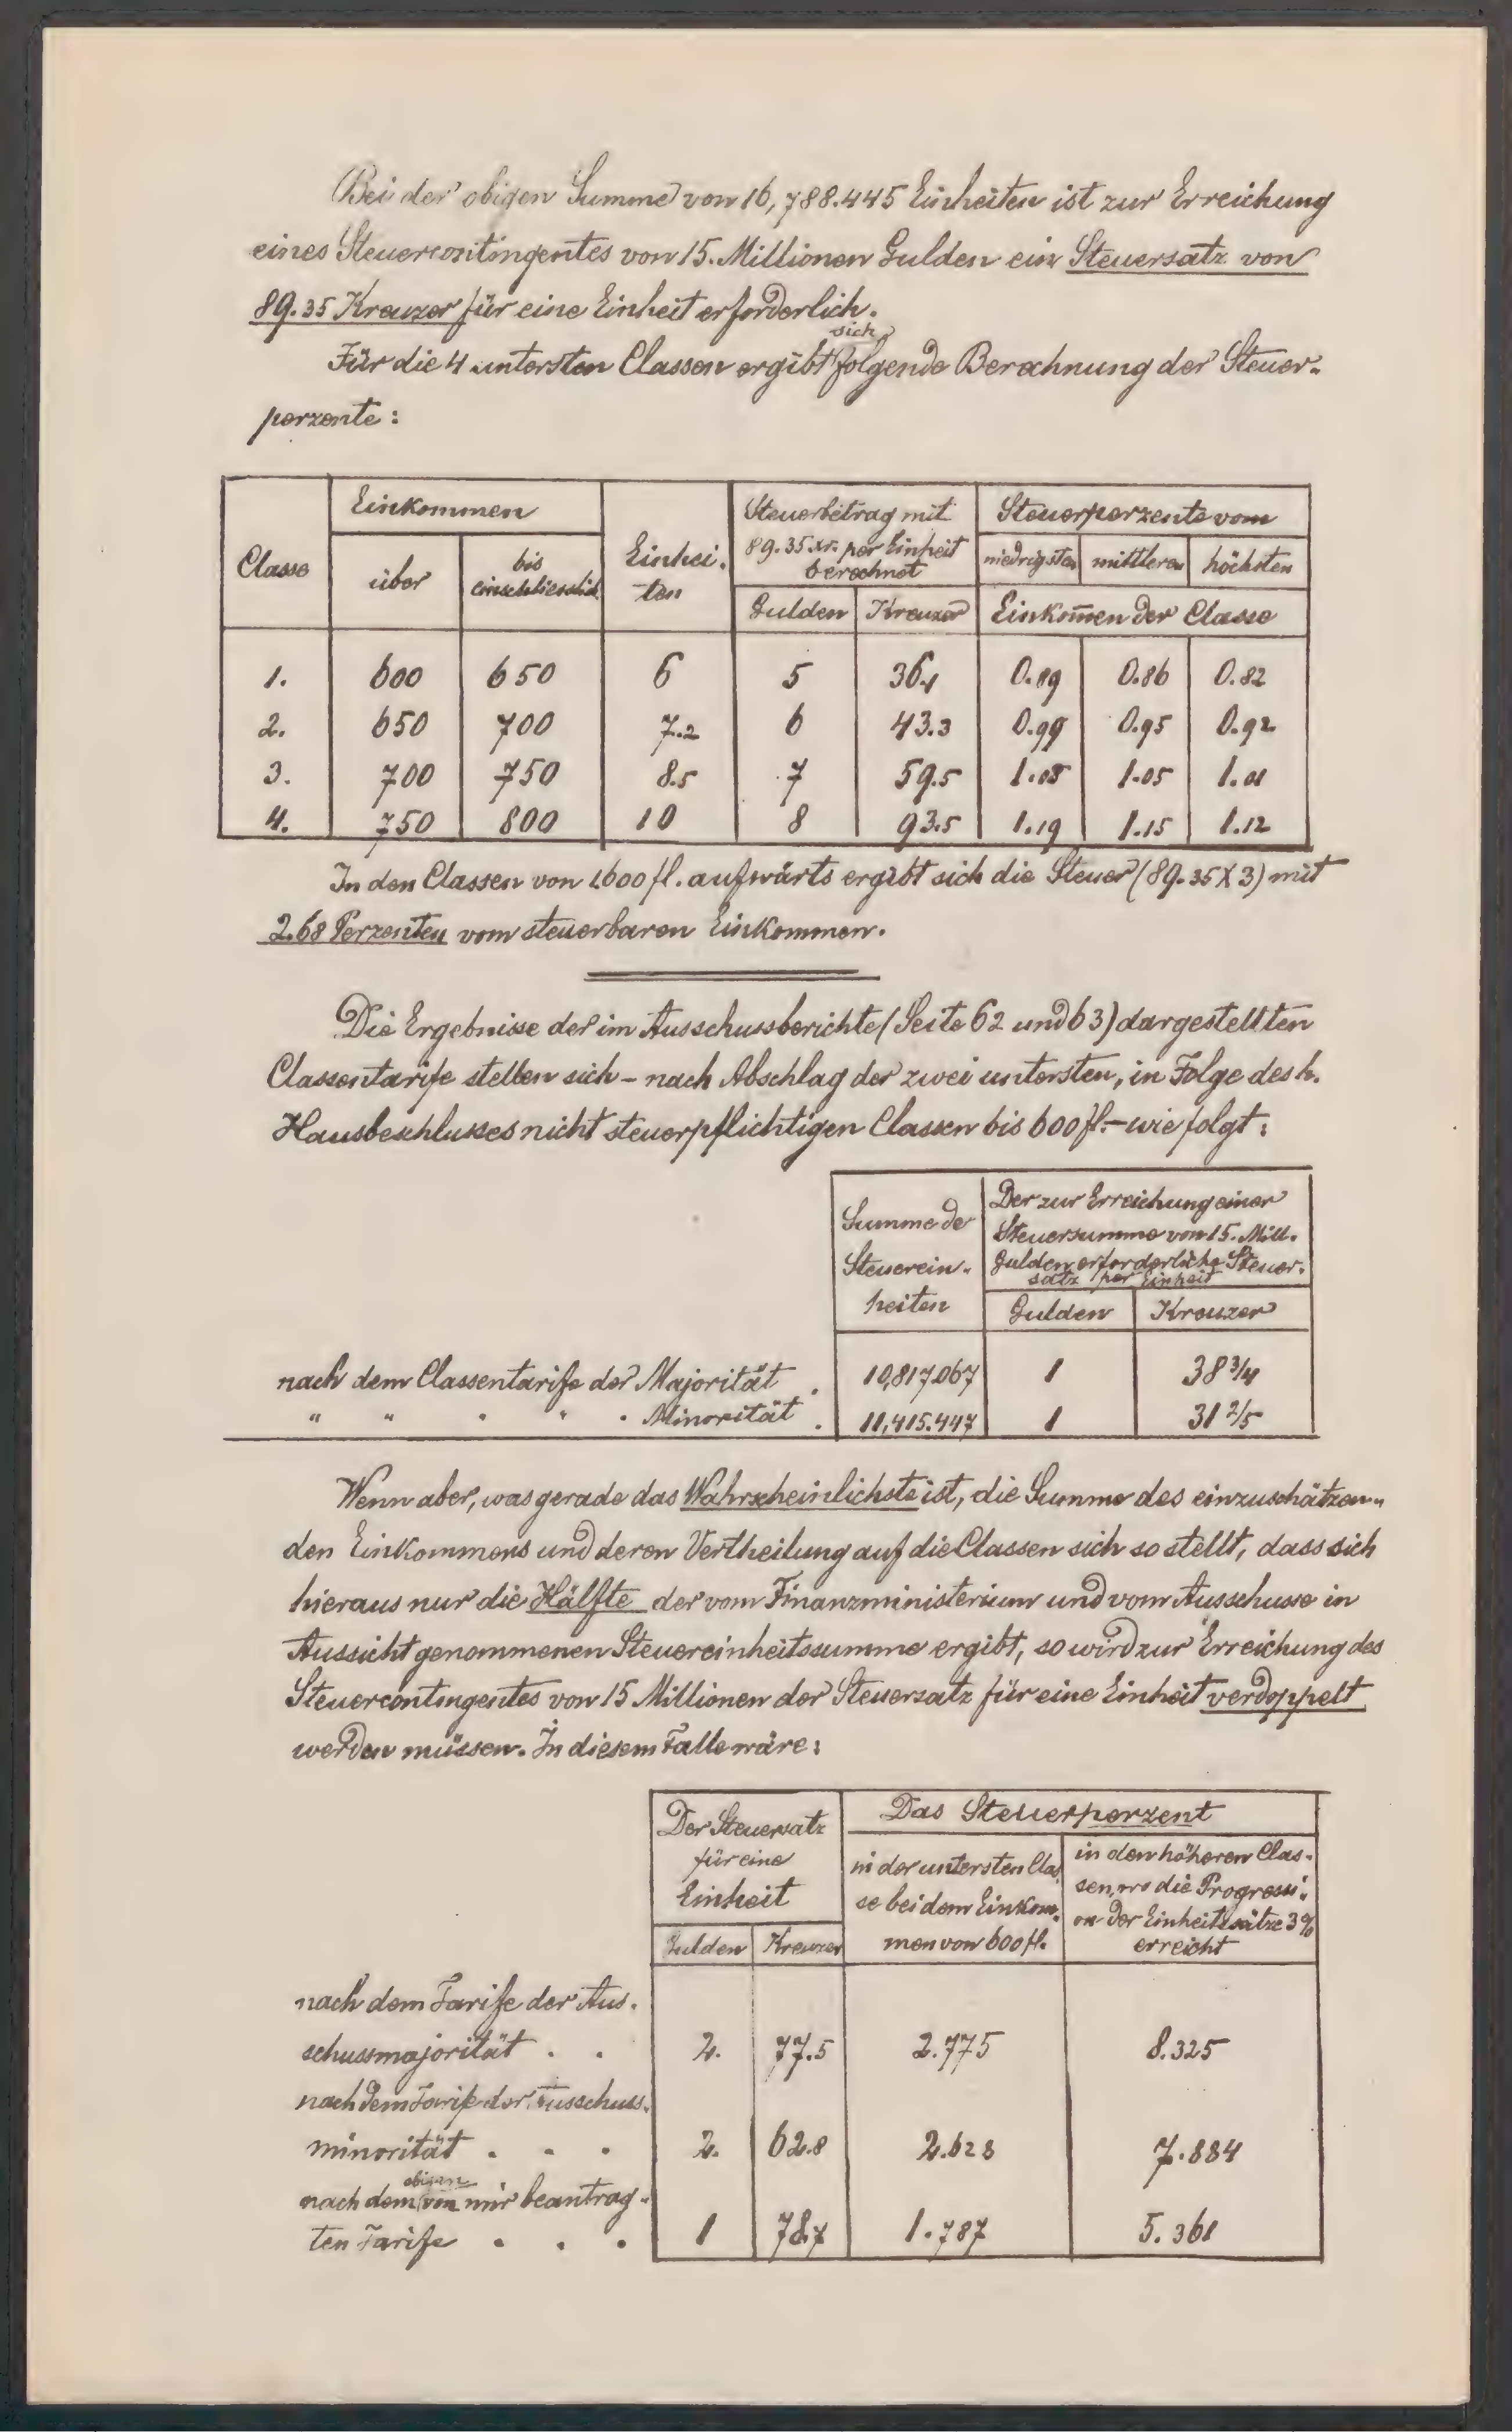 Bei der obigen Summe von 16,788.445 Einheiten ist zur Erreichung
eines Steuercontingentes von 15. Millionen Gulden ein Steuersatz von
89.35 Kreuzer für eine Einheit erforderlich.
Für die 4 untersten Classen ergibt sich folgende Berechnung der Steuer-
perzente:
Classe | Einkommen | Einhei- ten | Steuerbetrag mit 89.35 xr. per Einheit berechnet | Steuerperzente vom
über | bis einschliesslich | niedrigsten | mittleren | höchsten
Gulden | Kreuzer | Einkom̄en der Classe
1. 600 650 6 5 36.1 0.89 0.86 0.82
2. 650 700 7.2 6 43.3 0.99 0.95 0.92
3. 700 750 8.5 7 59.5 1.08 1.05 1.01
4. 750 800 10 8 93.5 1.19 1.15 1.12
In den Classen von 1600 fl. aufwärts ergibt sich die Steuer (89.35 X 3) mit
2.68 Perzenten vom steuerbaren Einkommen.
Die Ergebnisse der im Ausschussberichte (Seite 62 und 63) dargestellten
Classentarife stellen sich – nach Abschlag der zwei untersten, in Folge des h.
Hausbeschlusses nicht steuerpflichtigen Classen bis 600 fl. – wie folgt:
Summe de
Steuerein-
heiten
Der zur Erreichung einer
Steuersumme von 15. Mill.
Gulden erforderliche Steuer-
satz per Einheit
Gulden Kreuzer
nach dem Classentarife der Majorität . 10,817.067 1 38 3/4
" " " " " Minorität . 11,415.447 1 31 2/5
Wenn aber, was gerade das Wahrscheinlichste ist, die Summe des einzuschätzen-
den Einkommens und deren Vertheilung auf die Classen sich so stellt, dass sich
hieraus nur die Hälfte der vom Finanzministerium und vom Ausschusse in
Aussicht genommenen Steuereinheitssumme ergibt, so wird zur Erreichung des
Steuercontingentes von 15 Millionen der Steuersatz für eine Einheit verdoppelt
werden müssen. In diesem Falle wäre:
Der Steuersatz
für eine
Einheit
Gulden Kreuzer
Das Steuerperzent
in der untersten Clas-
se bei dem Einkom-
men von 600 fl.
in den höheren Clas-
sen, wo die Progressi-
on der Einheitssätze 3%
erreicht
nach dem Tarife der Aus-
schussmajorität . . 2. 77.5 2.775 8.325
nach dem Tarife der Ausschuss-
minorität . . . 2. 62.8 2.628 7.884
nach dem obigen von mir beantrag-
ten Tarife . . . 1 78.7 1.787 5.361